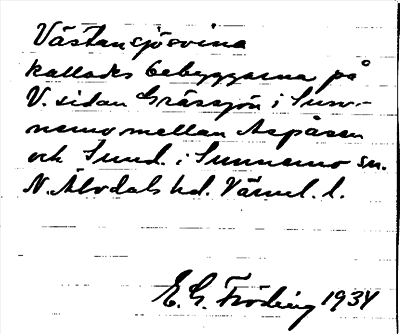 Västansjösvina
kallades bebyggarna på
V. sidan Grässjön i Sun-
nemo mellan Aspåsen
och Sund. i Sunnemo sn.
N. Älvdals hd. Värml. l.
E. G. Fröding 1934